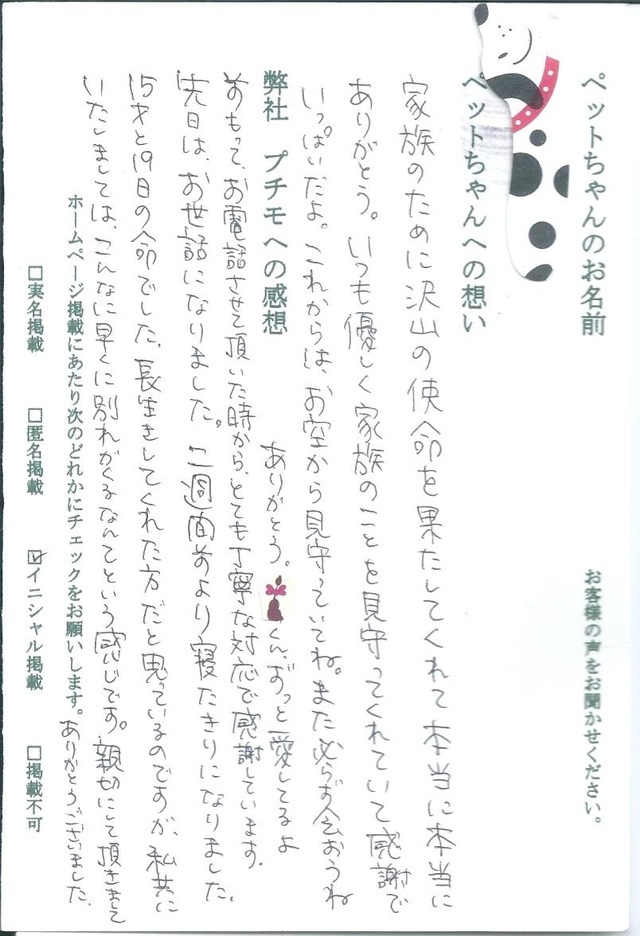 お客様の声をお聞かせください。
ペットちゃんのお名前
ペットちゃんへの想い
家族のために沢山の使命を果たしてくれて本当に本当に
ありがとう。いつも優しく家族のことを見守ってくれていて感謝で
いっぱいだよ。これからは、お空から見守っていてね。また必らず会おうね
ありがとう。くん、ずっと愛してるよ
弊社 プチモへの感想
前もって、お電話させて頂いた時から、とても丁寧な対応で感謝しています。
先日は、お世話になりました。二週間前より寝たきりになりました。
15才と19日の命でした。長生きしてくれた方だと思っているのですが、私共に
いたしましては、こんなに早くに別れがくるなんてという感じです。親切にして頂きまして
ありがとうございました。
ホームページ掲載にあたり次のどれかにチェックをお願いします。
□実名掲載 □匿名掲載 ☑イニシャル掲載 □掲載不可